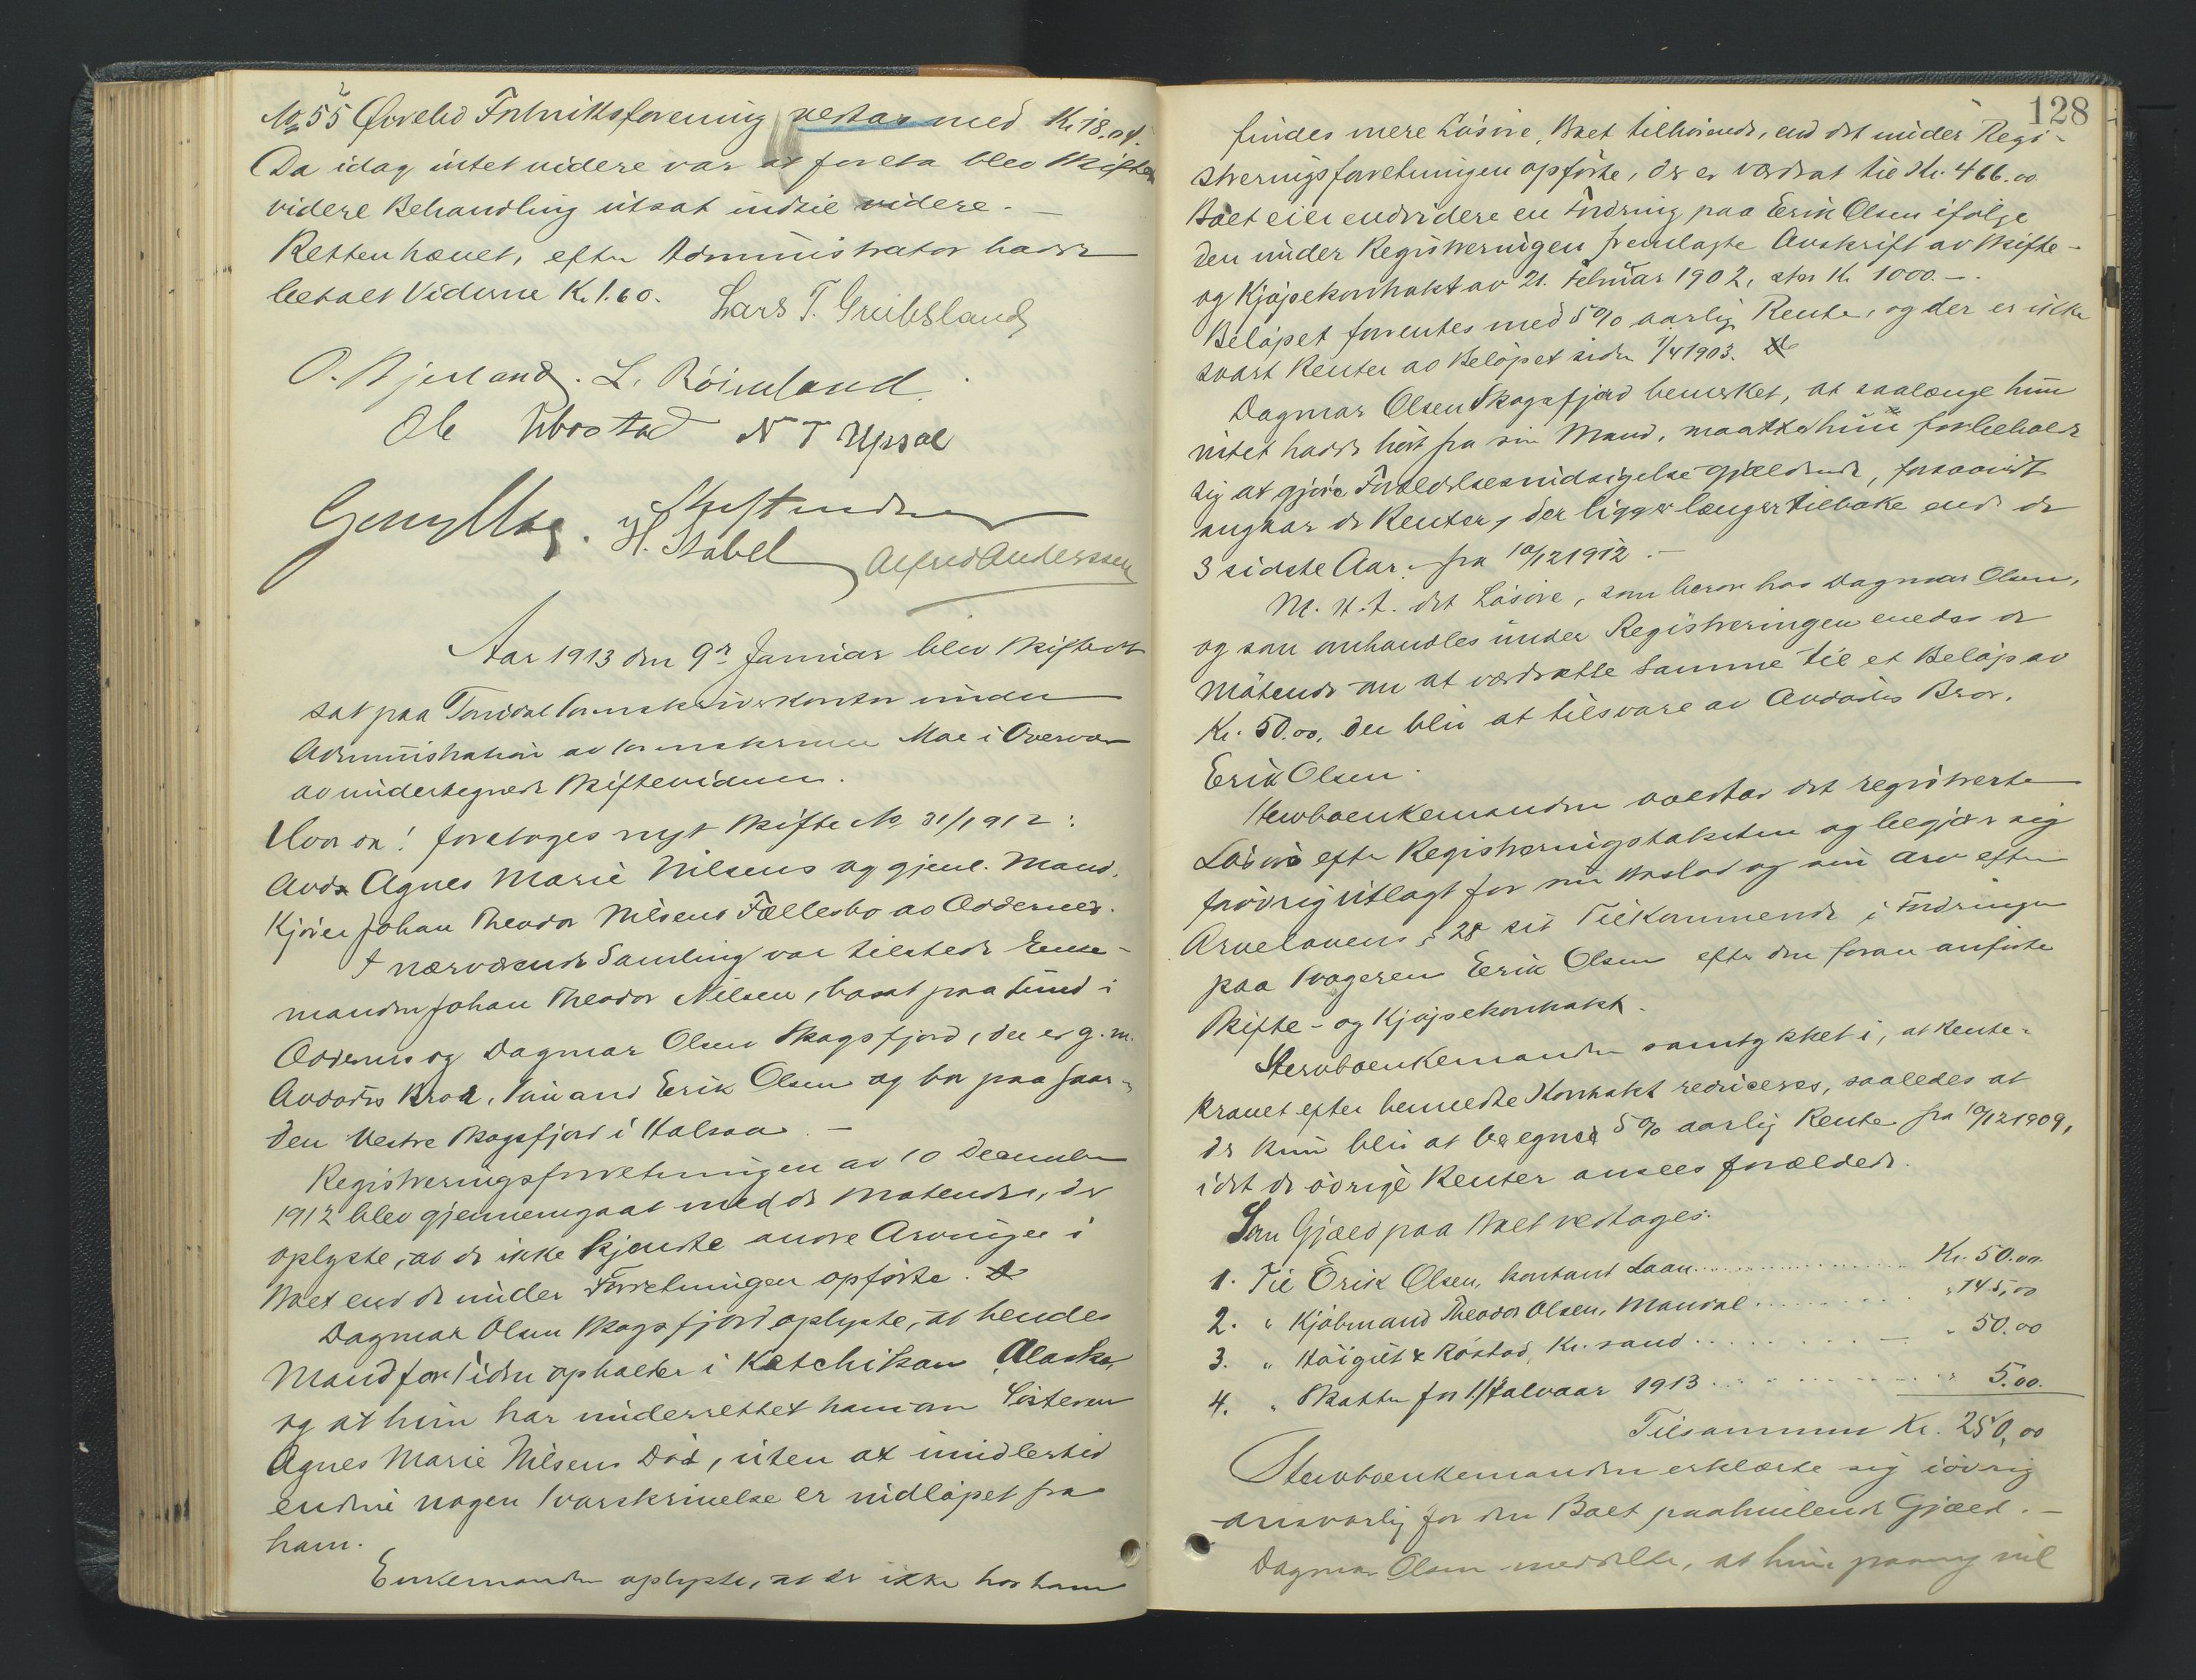 No 55 Øvrebø Forbruksforening vedtas med Kr 18.04.
Da idag intet videre var at foreta blev Skiftets
videre Behandling utsat indtil videre. —
Retten hævet, efter Administrator hadde
betalt Viderne Kr. 1.60. Lars T. Greibsland
O. Bjerland. L. Röinland.
Ole N T Upsal
H. Stabel Alfred Anderssen
Aar 1913 den 9de Januar blev Skifteret
sat paa Torridal Sorenskriverkontor under
Administration av Sorenskriver Moe i Overvær
av undertegnede Skiftevidner.
Hvor da! foretoges nyt Skifte No 31/1912:
Avdø Agnes Marie Nilsens og gjenl. Mand,
Kjører Johan Theodor Nilsens Fællesbo av Oddernes.
I nærværende Samling var tilstede Enke-
manden Johan Theodor Nilsen, bosat paa Lund i
Oddernes og Dagmar Olsen Skogsfjord, der er g. m.
Avdødes Bror, Sømand Erik Olsen og bor paa Gaar-
den Vestre Skogsfjord i Halsaa. —
Registreringsforretningen av 10 December
1912 blev gjennemgaat med de Møtende, der
oplyste, at de ikke kjendte andre Arvinger i
Boet end de under Forretningen opførte.
Dagmar Olsen Skogsfjord oplyste, at hendes
Mand for Tiden opholder i Ketchikan Alaska,
og at hun har underrettet ham om Søsteren
Agnes Marie Nilsens Død, uten at imidlertid
endnu nogen Svarskrivelse er indløpet fra
ham.
Enkemanden oplyste, at der ikke hos ham
128
findes mere Løsøre, Boet tilhørende, end det under Regi-
streringsforretningen opførte, der er værdsat til Kr. 466.00.
Boet eier endvidere en Fordring paa Erik Olsen ifølge
den under Registreringen fremlagte Avskrift av Skifte-
og Kjøpekontrakt av 21. Februar 1902, stor Kr. 1000.—.
Beløpet forrentes med 5 % aarlig Rente, og der er ikke
svart Renter av Beløpet siden 1/4 1903.
Dagmar Olsen Skogsfjord bemerket, at saalænge hun
intet hadde hørt fra sin Mand, maatte hun forbeholde
sig at gjøre Forældelsesindsigelse gjældende, forsaavidt
angaar de Renter, der ligger længer tilbake end de
3 sidste Aar fra 10/12 1912. —
M. H. t. det Løsøre, som beror hos Dagmar Olsen,
og som omhandles under Registreringen enedes de
Møtende om at værdsætte samme til et Beløp av
Kr. 50.00, der blir at tilsvare av Avdødes Bror,
Erik Olsen.
Stervboenkemanden overtar det registrerte
Løsøre efter Registreringstaksten og begjærer sig
forøvrig utlagt for sin Boslod og sin Arv efter
Arvelovens § 28 sit Tilkommende i Fordringen
paa Svogeren Erik Olsen efter den foran anførte
Skifte- og Kjøpekontrakt.
Stervboenkemanden samtykket i, at Rente-
kravet efter bemeldte Kontrakt reduceres, saaledes at
der kun blir at beregne 5 % aarlig Rente fra 10/12 1909,
idet de øvrige Renter ansees forældede.
Som Gjæld paa Boet vedtoges:
1. Til Erik Olsen, kontant Laan .......... Kr. 50.00
2. " Kjøbmand Theodor Olsen, Mandal .......... " 145,00
3. " Höigilt & Röstad, Kr.sand .......... " 50.00
4. " Skatter for 1ste Halvaar 1913 .......... " 5.00
Tilsammen Kr. 250,00
Stervboenkemanden erklærte sig iøvrig
ansvarlig for den Boet paahvilende Gjæld. —
Dagmar Olsen meddelte, at hun paany vil